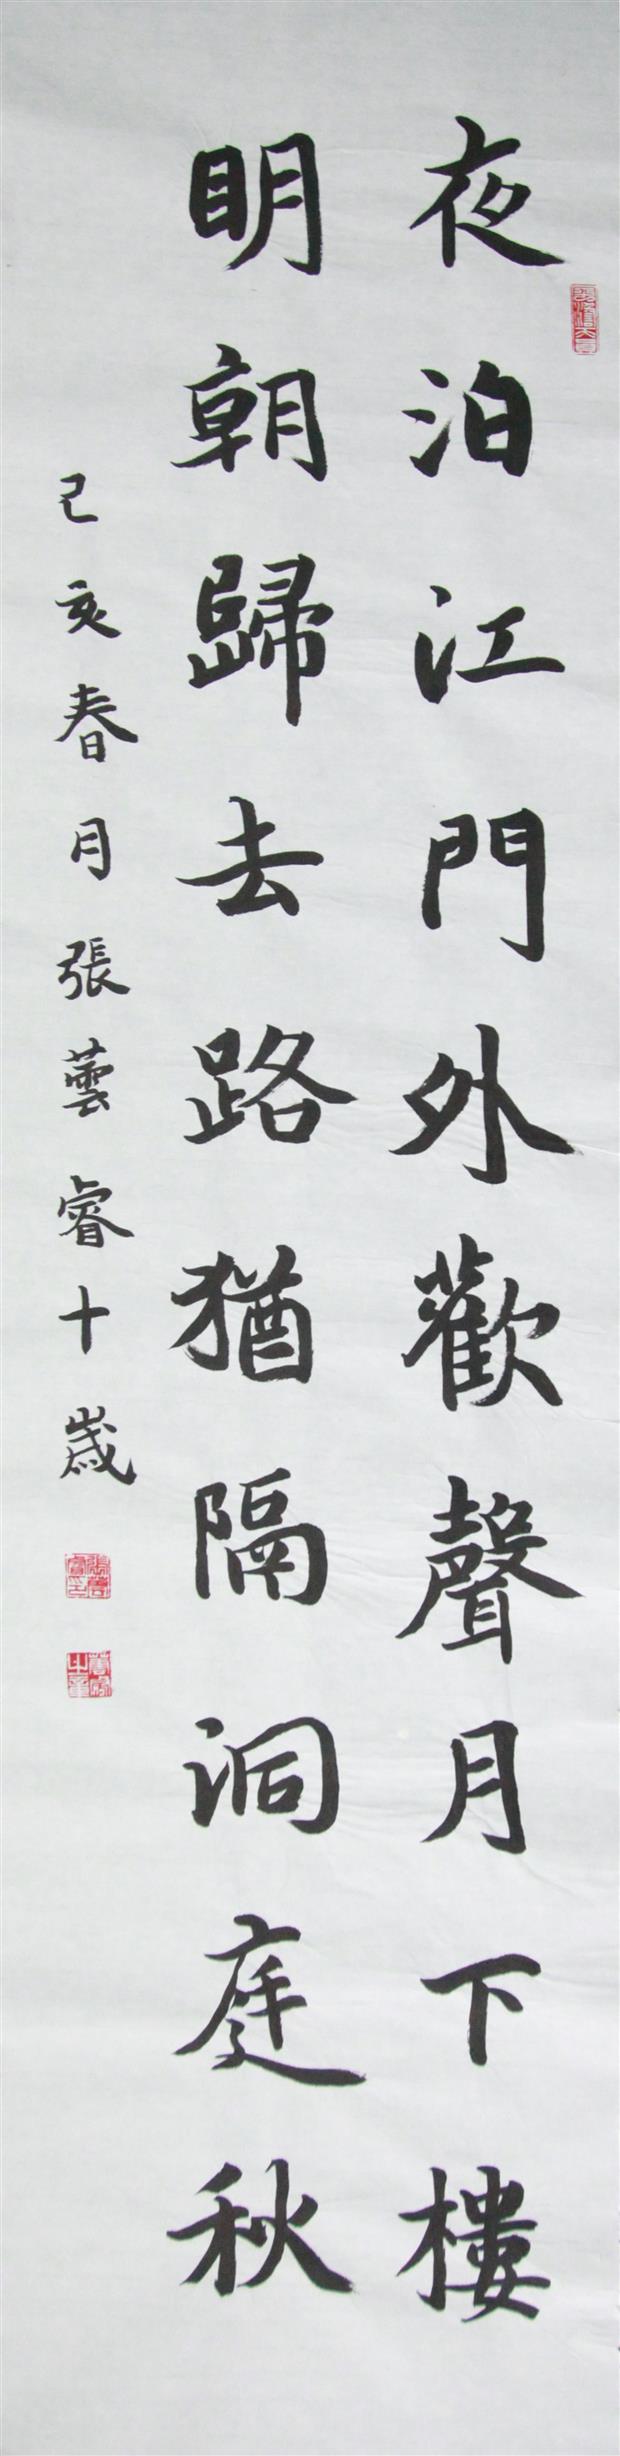 夜泊江門外歡聲月下樓
明朝歸去路猶隔洞庭秋
己亥春月張蕓睿十歲